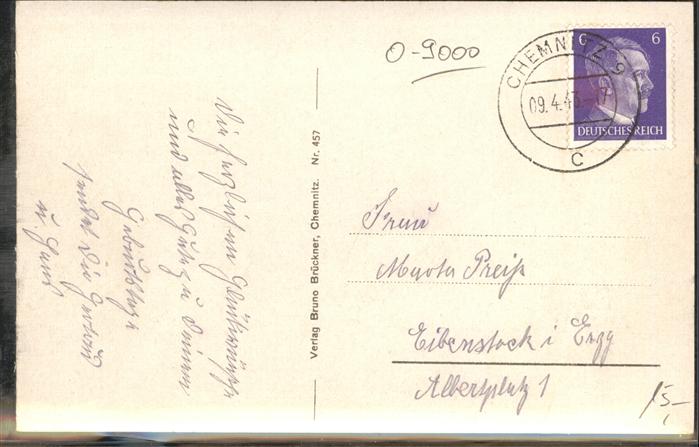 Die herzlichsten Glückwünsche
und alles Gute zu Deinem
Geburtstage
sendet Dir
u. Hans
Verlag Bruno Brückner, Chemnitz. Nr. 457
O-9000
CHEMNITZ 9
09.4.43.-7
C
6 6
DEUTSCHES REICH
Frau
Marta Preiß
Eibenstock i Erzg
Albertplatz 1
15,-